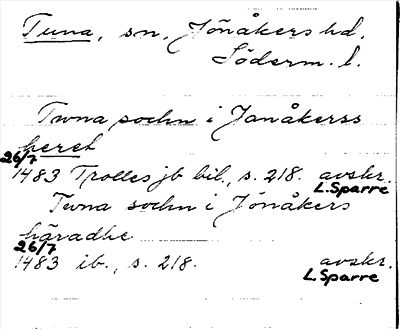 Tuna, sn, Jönåkers hd.
Söderm. l.
Twna sochn i Jonåkerss
heret
26/7
1483 Trolles jb bil., s. 218. avskr.
L. Sparre
Twna sochn i Jönåkers
häradhe
26/7
1483 ib., s. 218. avskr.
L. Sparre